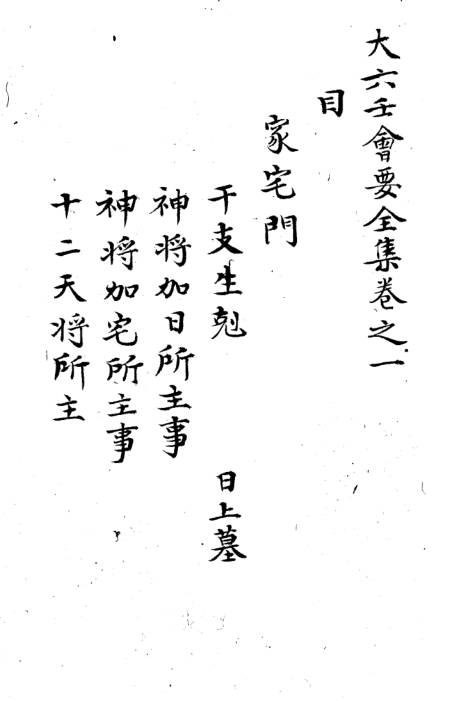 大六壬會要全集卷之一
目
家宅門
干支生剋
日上墓
神将加日所主事
神将加宅所主事
十二天将所主